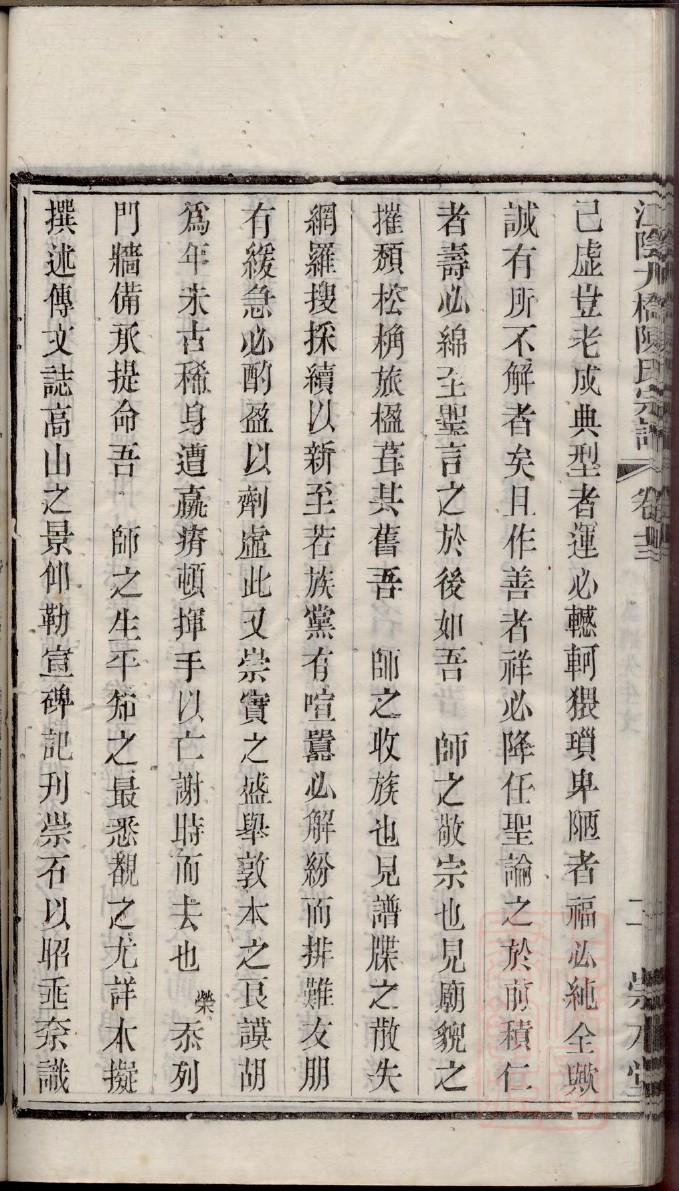 江陰九橋陳氏宗譜 卷 二 崇本堂
已虛豈老成典型者運必轗軻猥瑣卑陋者福必純全歟
誠有所不解者矣且作善者祥必降任聖論之於前積仁
者壽必綿至聖言之於後如吾 師之敬宗也見廟貌之
摧頹松桷旅楹葺其舊吾 師之收族也見譜牒之散失
網羅搜採續以新至若族黨有喧囂必解紛而排難友朋
有緩急必酌盈以劑虛此又崇實之盛舉敦本之良謨胡
爲年未古稀身遭羸瘠頓揮手以亡謝時而去也 榮 忝列
門牆備承提命吾 師之生平知之最悉覩之尤詳本擬
撰述傳文誌高山之景仰勒宣碑記刋崇石以昭垂奈識